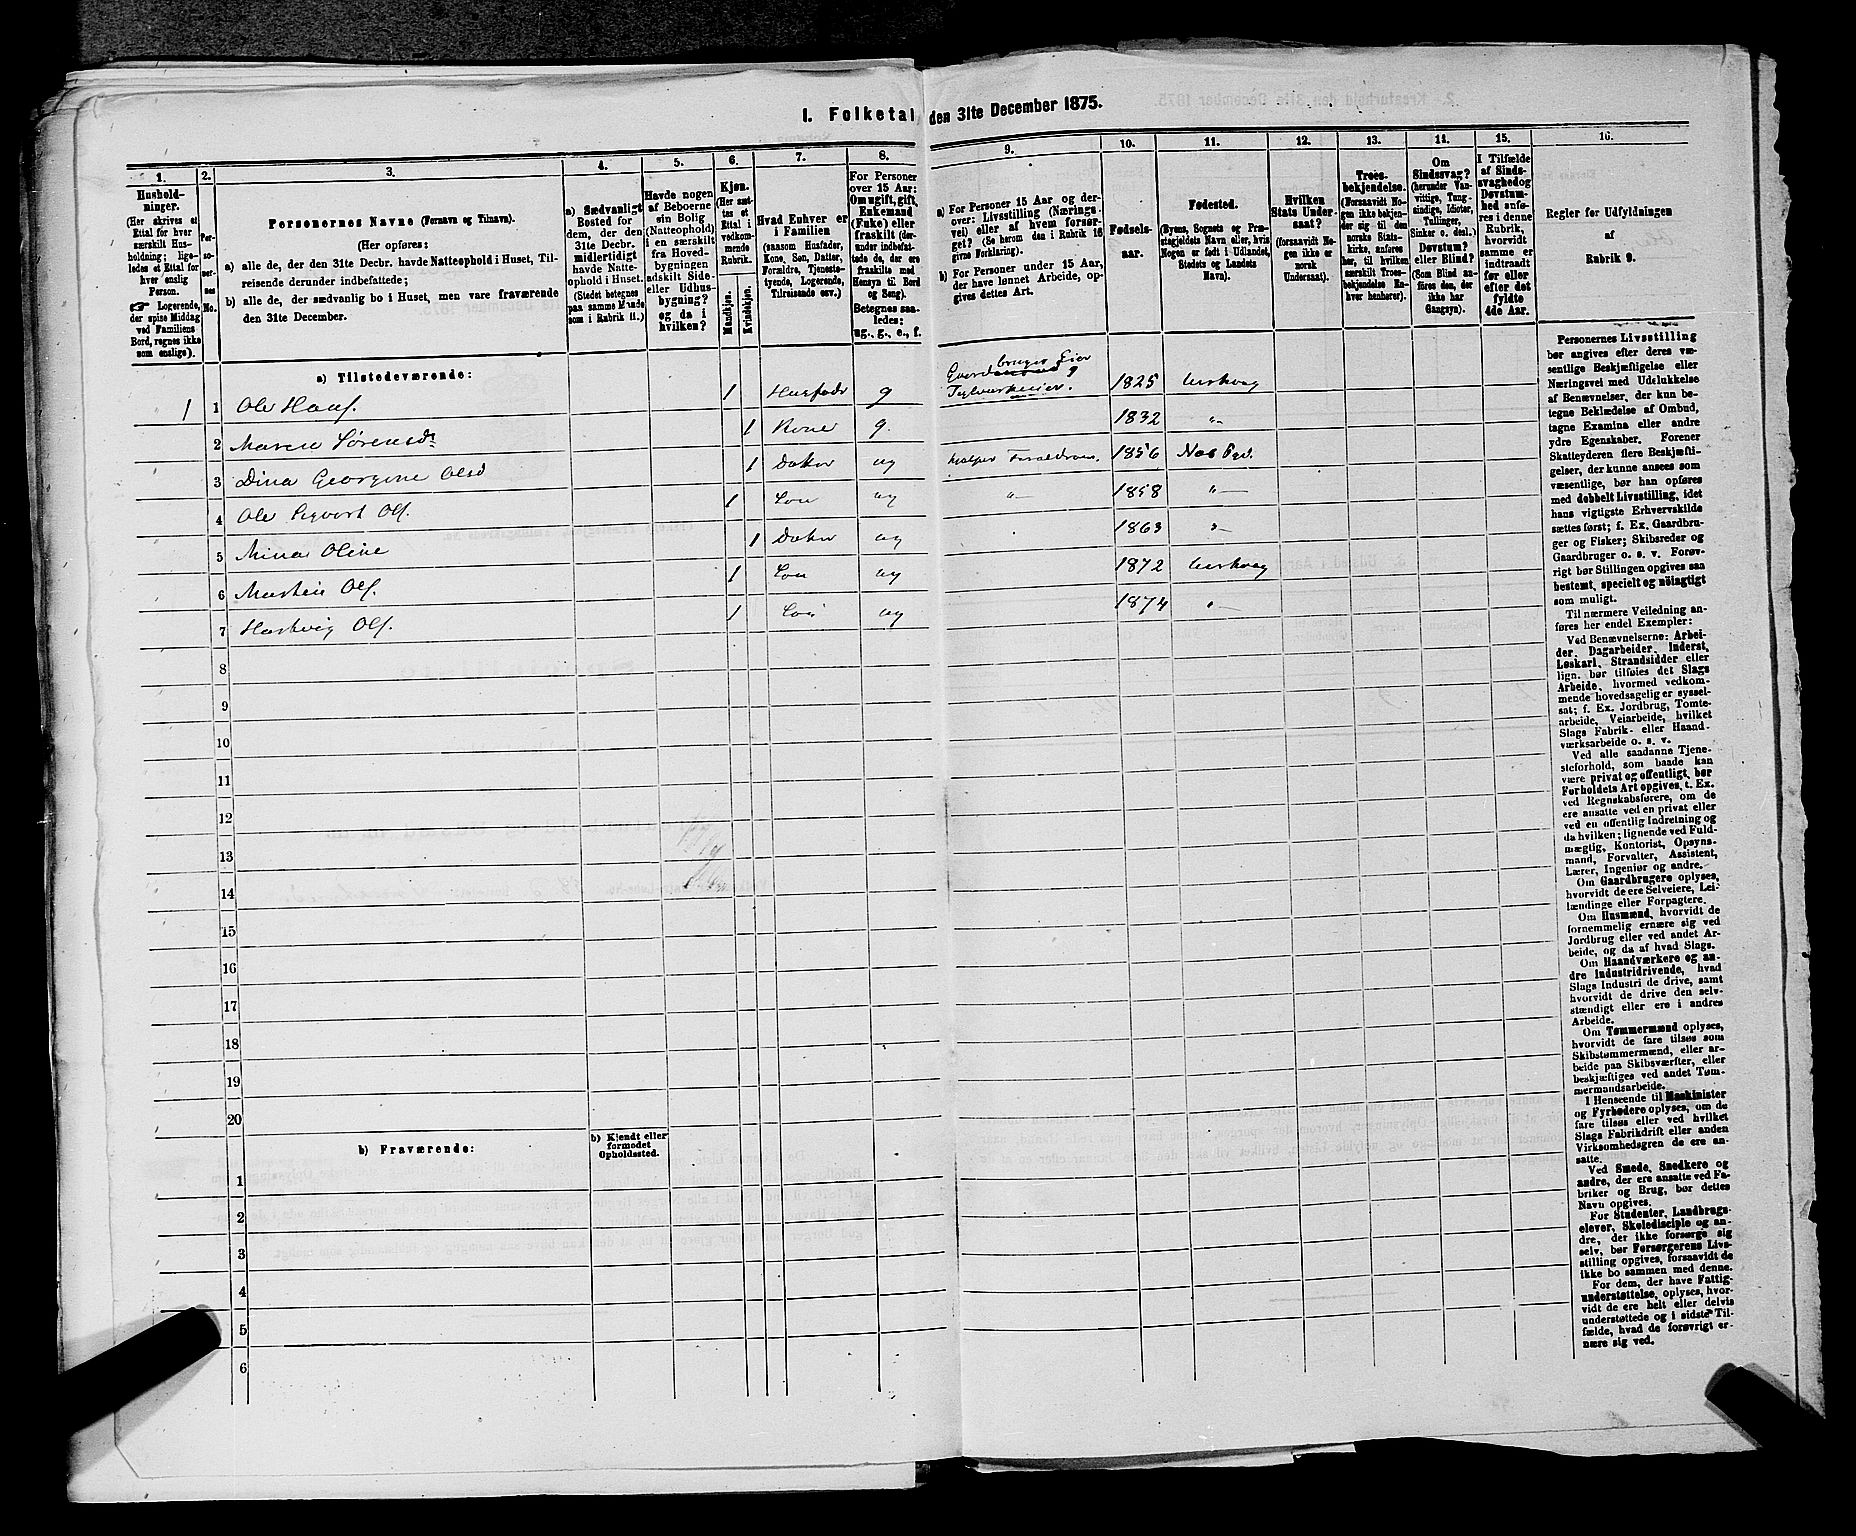 I. Folketal den 31te December 1875.
1. 2. 3. 4. 5. 6. 7. 8. 9. 10. 11. 12. 13. 14. 15. 16.
Hushold-
ninger.
(Her skrives et
Ettal for hver
særskilt Hus-
holdning; lige-
ledes et Ettal for
hver enslig
Person.
☞ Logerende,
der spise Middag
ved Familiens
Bord, regnes ikke
som enslige).
Per-
so-
ner-
nes
No.
Personernes Navne (Fornavn og Tilnavn).
(Her opføres:
a) alle de, der den 31te Decbr. havde Natteophold i Huset, Til-
reisende derunder indbefattede;
b) alle de, der sædvanlig bo i Huset, men vare fraværende
den 31te December.
a) Sædvanligt
Bosted for
dem, der den
31te Decbr.
midlertidigt
havde Natte-
ophold i Huset.
(Stedet betegnes
paa samme Maade
som i Rubrik 11.)
Havde nogen
af Beboerne
sin Bolig
(Natteophold)
i en særskilt
fra Hoved-
bygningen
adskilt Side-
eller Udhus-
bygning?
og da i
hvilken?
Kjøn.
(Her sæt-
tes et
Ettal i
vedkom-
mende
Rubrik.
Mandkjøn.
Kvindekjøn.
Hvad Enhver er
i Familien
(saasom Husfader,
Kone, Søn, Datter,
Forældre, Tjeneste-
tyende, Logerende,
Tilreisende osv.)
For Personer
over 15 Aar:
Om ugift, gift,
Enkemand
(Enke) eller
fraskilt (der-
under indbefat-
tede de, der ere
fraskilte med
Hensyn til Bord
og Seng).
Betegnes saa-
ledes:
ug., g., e., f.
a) For Personer 15 Aar og der-
over: Livsstilling (Nærings-
vei) eller af hvem forsør-
get? (Se herom den i Rubrik 16
givne Forklaring).
b) For Personer under 15 Aar,
der have lønnet Arbeide, op-
gives dettes Art.
Fødsels-
aar.
Fødested.
(Byens, Sognets og Præ-
stegjeldets Navn eller, hvis
Nogen er født i Udlandet,
Stedets og Landets
Navn).
Hvilken
Stats Under-
saat?
(forsaavidt No-
gen ikke er
norsk
Undersaat).
Troes-
bekjendelse.
(Forsaavidt No-
gen ikke bekjen-
der sig til den
norske Stats-
kirke, anføres
her, til hvilken
særskilt Troes-
bekjendelse En-
hver henhører).
Om
Sindssvag?
(herunder Van-
vittige, Tung-
sindige, Idioter,
Tullinger,
Sinker o. desl.)
Døvstum?
eller Blind?
(Som Blind an-
føres den, der
ikke har
Gangsyn).
I Tilfælde
af Sinds-
svaghed og
Døvstum-
hed anfø-
res i denne
Rubrik,
hvorvidt
samme er
indtraadt
før eller
efter det
fyldte
4de Aar.
Regler for Udfyldningen
af
Rubrik 9.
a) Tilstedeværende:
1 1 Ole Hans. 1 Husfader g Gaardbruger Eier Teglværkeier. 1825 Urskoug
2 Maren Sørensdr 1 Kone g. 1832 "
3 Dina Georgine Olsd 1 Datter ug hjelper Forældrene. 1856 Næs Pgd.
4 Ole Sigvart Ols. 1 Søn ug " 1858 "
5 Mina Oline 1 Datter ug 1863 "
6 Martin Ols. 1 Søn ug 1872 Urskoug
7 Hartvig Ols. 1 Søn ug 1874 "
8
9
10
11
12
13
14
15
16
17
18
19
20
b) Fraværende:
b) Kjendt eller
formodet
Opholdssted.
1
2
3
4
5
6
Personernes Livsstilling
bør angives efter deres væ-
sentlige Beskjæftigelse eller
Næringsvei med Udelukkelse
af Benævnelser, der kun be-
tegne Beklædelse af Ombud,
tagne Examina eller andre
ydre Egenskaber. Forener
Skatteyderen flere Beskjæfti-
gelser, der kunne ansees som
væsentlige, bør han opføres
med dobbelt Livsstilling, idet
hans vigtigste Erhvervskilde
sættes først; f. Ex. Gaardbru-
ger og Fisker; Skibsreder og
Gaardbruger o. s. v. Forøv-
rigt bør Stillingen opgives saa
bestemt, specielt og nöiagtigt
som muligt.
Til nærmere Veiledning an-
føres her endel Exempler:
Ved Benævnelserne: Arbei-
der, Dagarbeider, Inderst,
Løskarl, Strandsidder eller
lign. bør tilføies det Slags
Arbeide, hvormed vedkom-
mende hovedsagelig er syssel-
sat; f. Ex. Jordbrug, Tomte-
arbeide, Veiarbeide, hvilket
Slags Fabrik- eller Haand-
værksarbeide o. s. v.
Ved alle saadanne Tjene-
steforhold, som baade kan
være privat og offentligt, bør
Forholdets Art opgives, t. Ex.
ved Regnskabsførere, om de
ere ansatte ved en privat eller
ved en offentlig Indretning og
da hvilken; lignende ved Fuld-
mægtig, Kontorist, Opsyns-
mand, Forvalter, Assistent,
Lærer, Ingeniør og andre.
Om Gaardbrugere oplyses,
hvorvidt de ere Selveiere, Lei-
lændinge eller Forpagtere.
Om Husmænd, hvorvidt de
fornemmelig ernære sig ved
Jordbrug eller ved andet Ar-
beide, og da af hvad Slags.
Om Haandværkere og an-
dre Industridrivende, hvad
Slags Industri de drive, samt
hvorvidt de drive den selv-
stændigt eller ere i andres
Arbeide.
Om Tømmermænd oplyses,
hvorvidt de fare tilsøs som
Skibstømmermænd, eller ar-
beide paa Skibsværfter, eller
beskjæftiges ved andet Tøm-
mermandsarbeide.
I Henseende til Maskinister
og Fyrbødere oplyses, om de
fare tilsøs eller ved hvilket
Slags Fabrikdrift eller anden
Virksomhedsgren de ere an-
satte.
Ved Smede, Snedkere og
andre, der ere ansatte ved Fa-
briker og Brug, bør dettes
Navn opgives.
For Studenter, Landbrugs-
elever, Skoledisciple og an-
dre, der ikke forsørge sig
selv, bør Forsørgerens Livs-
stilling opgives, forsaavidt de
ikke bo sammen med denne.
For dem, der have Fattig-
understøttelse, oplyses, hvor-
vidt de ere helt eller delvis
understøttede og i sidste Til-
fælde, hvad de forøvrigt er-
nære sig ved.